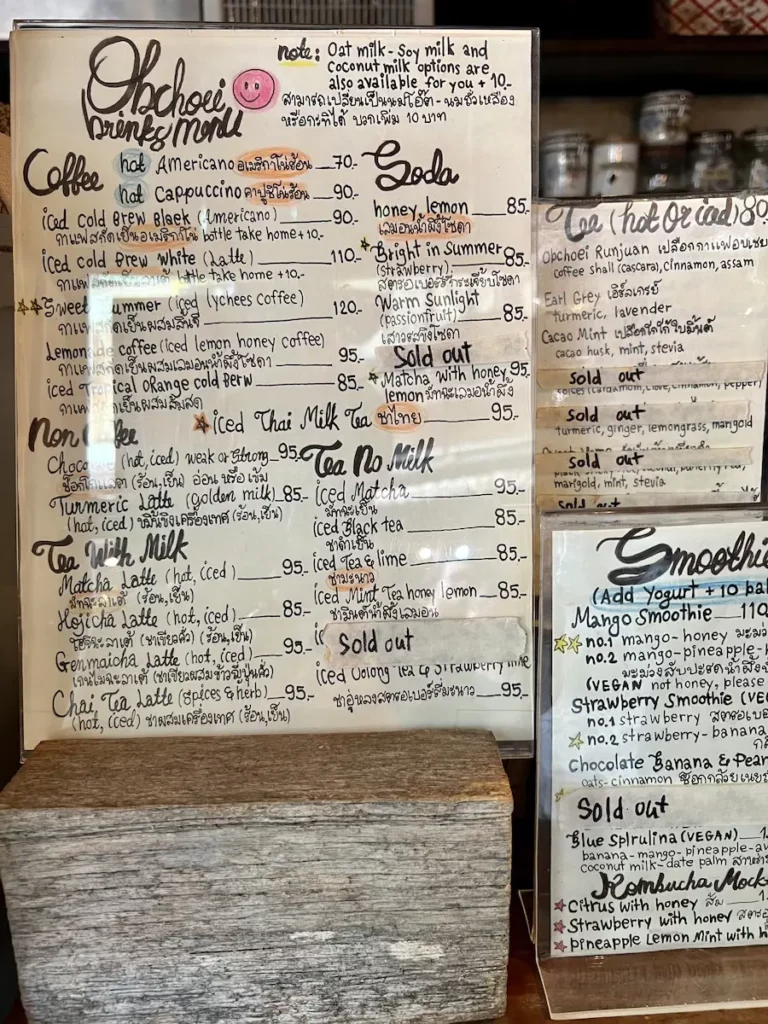 Obchoei
Drinks Menu
note: Oat milk - Soy milk and
coconut milk options are
also available for you + 10.-
สามารถเปลี่ยนเป็นนมโอ๊ต - นมถั่วเหลือง
หรือกะทิได้ บวกเพิ่ม 10 บาท
Coffee
hot Americano อเมริกาโน่ร้อน 70.-
hot Cappuccino คาปูชิโน่ร้อน 90.-
iced cold brew Black (Americano) 90.-
กาแฟสกัดเย็นอเมริกาโน่ bottle take home +10.-
iced cold brew white (Latte) 110.-
bottle take home +10.-
Sweet Summer (iced lychees coffee) 120.-
กาแฟสกัดเย็นผสมลิ้นจี่
Lemonade coffee (iced lemon honey coffee)
กาแฟสกัดเย็นผสมเลมอนน้ำผึ้งโซดา 95.-
iced Tropical Orange cold berw 85.-
กาแฟสกัดเย็นผสมส้มสด
Soda
honey lemon 85.-
เลมอนน้ำผึ้งโซดา
Bright in Summer 85.-
(strawberry)
Warm Sunlight
(passionfruit) 85.-
เสาวรสขิงโซดา
Sold out
Matcha with honey 95.-
lemon มัทฉะเลมอนน้ำผึ้ง
iced Thai Milk Tea ชาไทย 95.-
Non Coffee
Chocolate (hot, iced) weak or strong 95.-
ช็อกโกแลต (ร้อน, เย็น) อ่อน หรือ เข้ม
Turmeric Latte (golden milk) 85.-
(hot, iced) ขมิ้นขิงเครื่องเทศ (ร้อน, เย็น)
Tea With Milk
Matcha Latte (hot, iced) 95.-
มัทฉะลาเต้ (ร้อน, เย็น)
Hojicha Latte (hot, iced) 85.-
โฮจิฉะลาเต้ (ชาเขียวคั่ว) (ร้อน, เย็น)
Genmaicha Latte (hot, iced) 95.-
เกนไมฉะลาเต้ (ชาเขียวผสมข้าวญี่ปุ่นคั่ว)
Chai Tea Latte (spices & herb) 95.-
(hot, iced) ชาผสมเครื่องเทศ (ร้อน, เย็น)
Tea No Milk
iced Matcha 95.-
มัทฉะเย็น
iced Black tea 85.-
ชาดำเย็น
iced Tea & lime 85.-
ชามะนาว
iced Mint Tea honey lemon 85.-
ชามินต์น้ำผึ้งเลมอน
Sold out
iced Oolong Tea & Strawberry lime
ชาอู่หลงสตรอเบอร์รี่มะนาว 95.-
Tea (hot or iced) 80
Obchoei Runjuan เปลือกกาแฟอบเชย
coffee shall (cascara), cinnamon, assam
Earl Grey เอิร์ลเกรย์
turmeric, lavender
Cacao Mint เปลือกโกโก้ใบมิ้นต์
cacao husk, mint, stevia
sold out
spices (cardamom, clove, cinnamon, pepper)
sold out
turmeric, ginger, lemongrass, marigold
sold out
marigold, mint, stevia
Sold out
Smoothie
(Add Yogurt + 10 ba
Mango Smoothie 110
no.1 mango-honey
no.2 mango-pineapple-
(VEGAN not honey, please
Strawberry Smoothie (VE
no.1 strawberry
no.2 strawberry-banana
Chocolate Banana & Pean
oats-cinnamon
Sold out
Blue Spirulina (VEGAN)
banana-mango-pineapple-
coconut milk-date palm
Kombucha Mock
Citrus with honey ส้ม
Strawberry with honey
Pineapple Lemon Mint with h